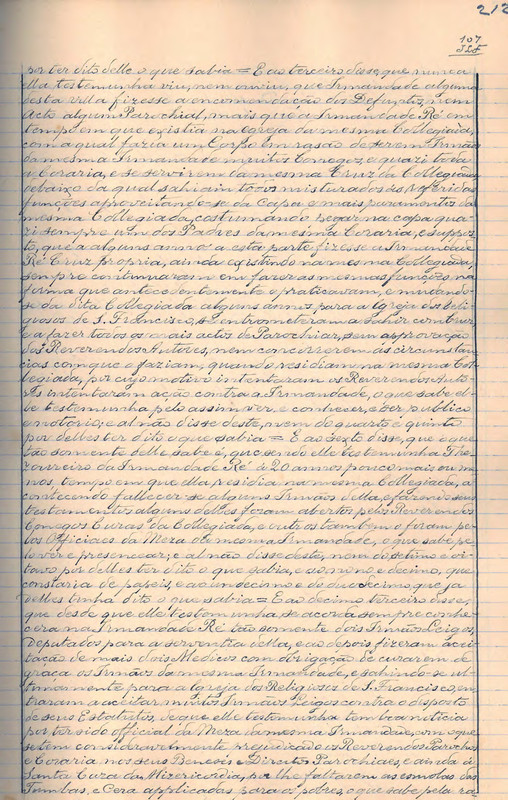 212
107
por ter dito delle o que sabia = E ao terceiro disse, que nunca
ella testemunha viu, nem ouviu, que Irmandade alguma
desta villa fizesse a encomendação dos Defuntos, nem
Acto algum Parochial, mais que a Irmandade Ré em
tempo em que existia na Igreja da mesma Collegiada,
com a qual fazia um Corpo em rasão de serem Irmãos
da mesma Irmandade muitos Conegos, e quazi toda
a Coraria, e se servirem da mesma Cruz da Collegiada
debaixo da qual sahiam todos misturados ás referidas
funções aproveitando-se da Capa e mais paramentos da
mesma Collegiada, costumando pegar na capa qua-
zi sempre um dos Padres da mesma Coraria, e suppos-
to, que a alguns anno' a esta parte fizesse a Irmandade
Ré Cruz propria, ainda existindo na mesma Collegiada,
sempre continuaram em fazer as mesmas funções, na
forma que antecedentemente o praticavam, e mudando-
se da dita Collegiada alguns annos, para a Igreja dos Reli-
giosos de S. Francisco, se entrometeram a sahir com cruz
e a fazer todos os mais actos de Parochiar, sem approvação
dos Reverendos Autores, nem concorrerem as circunstan-
cias com que o faziam, quando residiam na mesma Col-
legiada, por cujo motivo intentaram os Reverendos Auto-
res intentaram acção contra a Irmandade, o que sabe el-
le testemunha pelo assim ver, e conhecer, e ser publico
e notorio; e al não disse deste, nem do quarto e quinto
por delles ter dito o que sabia = E ao sexto disse, que o que
tão somente delle sabe é, que sendo elle testemunha The-
zoureiro da Irmandade Ré á 20 annos pouco mais ou me-
nos, tempo em que ella residia na mesma Collegiada, a-
contecendo fallecer-se alguns Irmãos della, e fazendo seus
testamentos alguns delles foram abertos pelos Reverendos
Conegos Curas da Collegiada, e outros tambem o foram pe-
los Officiaes da Meza da mesma Irmandade, o que sabe pe-
lo ver e presencear; e al não disse deste, nem do setimo e oi-
tavo por delles ter dito o que sabia, e ao nono e decimo, que
constaria de papeis, e ao undecimo e do duodecimo que ja
delles tinha dito o que sabia = E ao decimo terceiro disse,
que desde que elle testemunha se acorda sempre conhe-
cera na Irmandade Ré tão somente dois Irmãos Leigos,
Deputados para a serventia della, e ao depois fizeram acei-
tação de mais dois Medicos com obrigação de curarem de
graça os Irmãos da mesma Irmandade, e sahindo-se ul-
timamente para a Igreja dos Religiosos de S. Francisco, en-
traram a aceitar muitos Irmãos Leigos contra o disposto
de seus Estatutos, de que elle testemunha tem boa noticia
por ter sido official da Meza da mesma Irmandade, com o que
se tem consideravelmente prejudicado os Reverendos Parochos
e Coraria nos seus Beneses e Direitos Parochiaes, e ainda a
Santa Caza da Misericordia, por lhe faltarem as esmolas das
Tumbas, e Cera applicadas para os pobres, o que sabe pela ra-